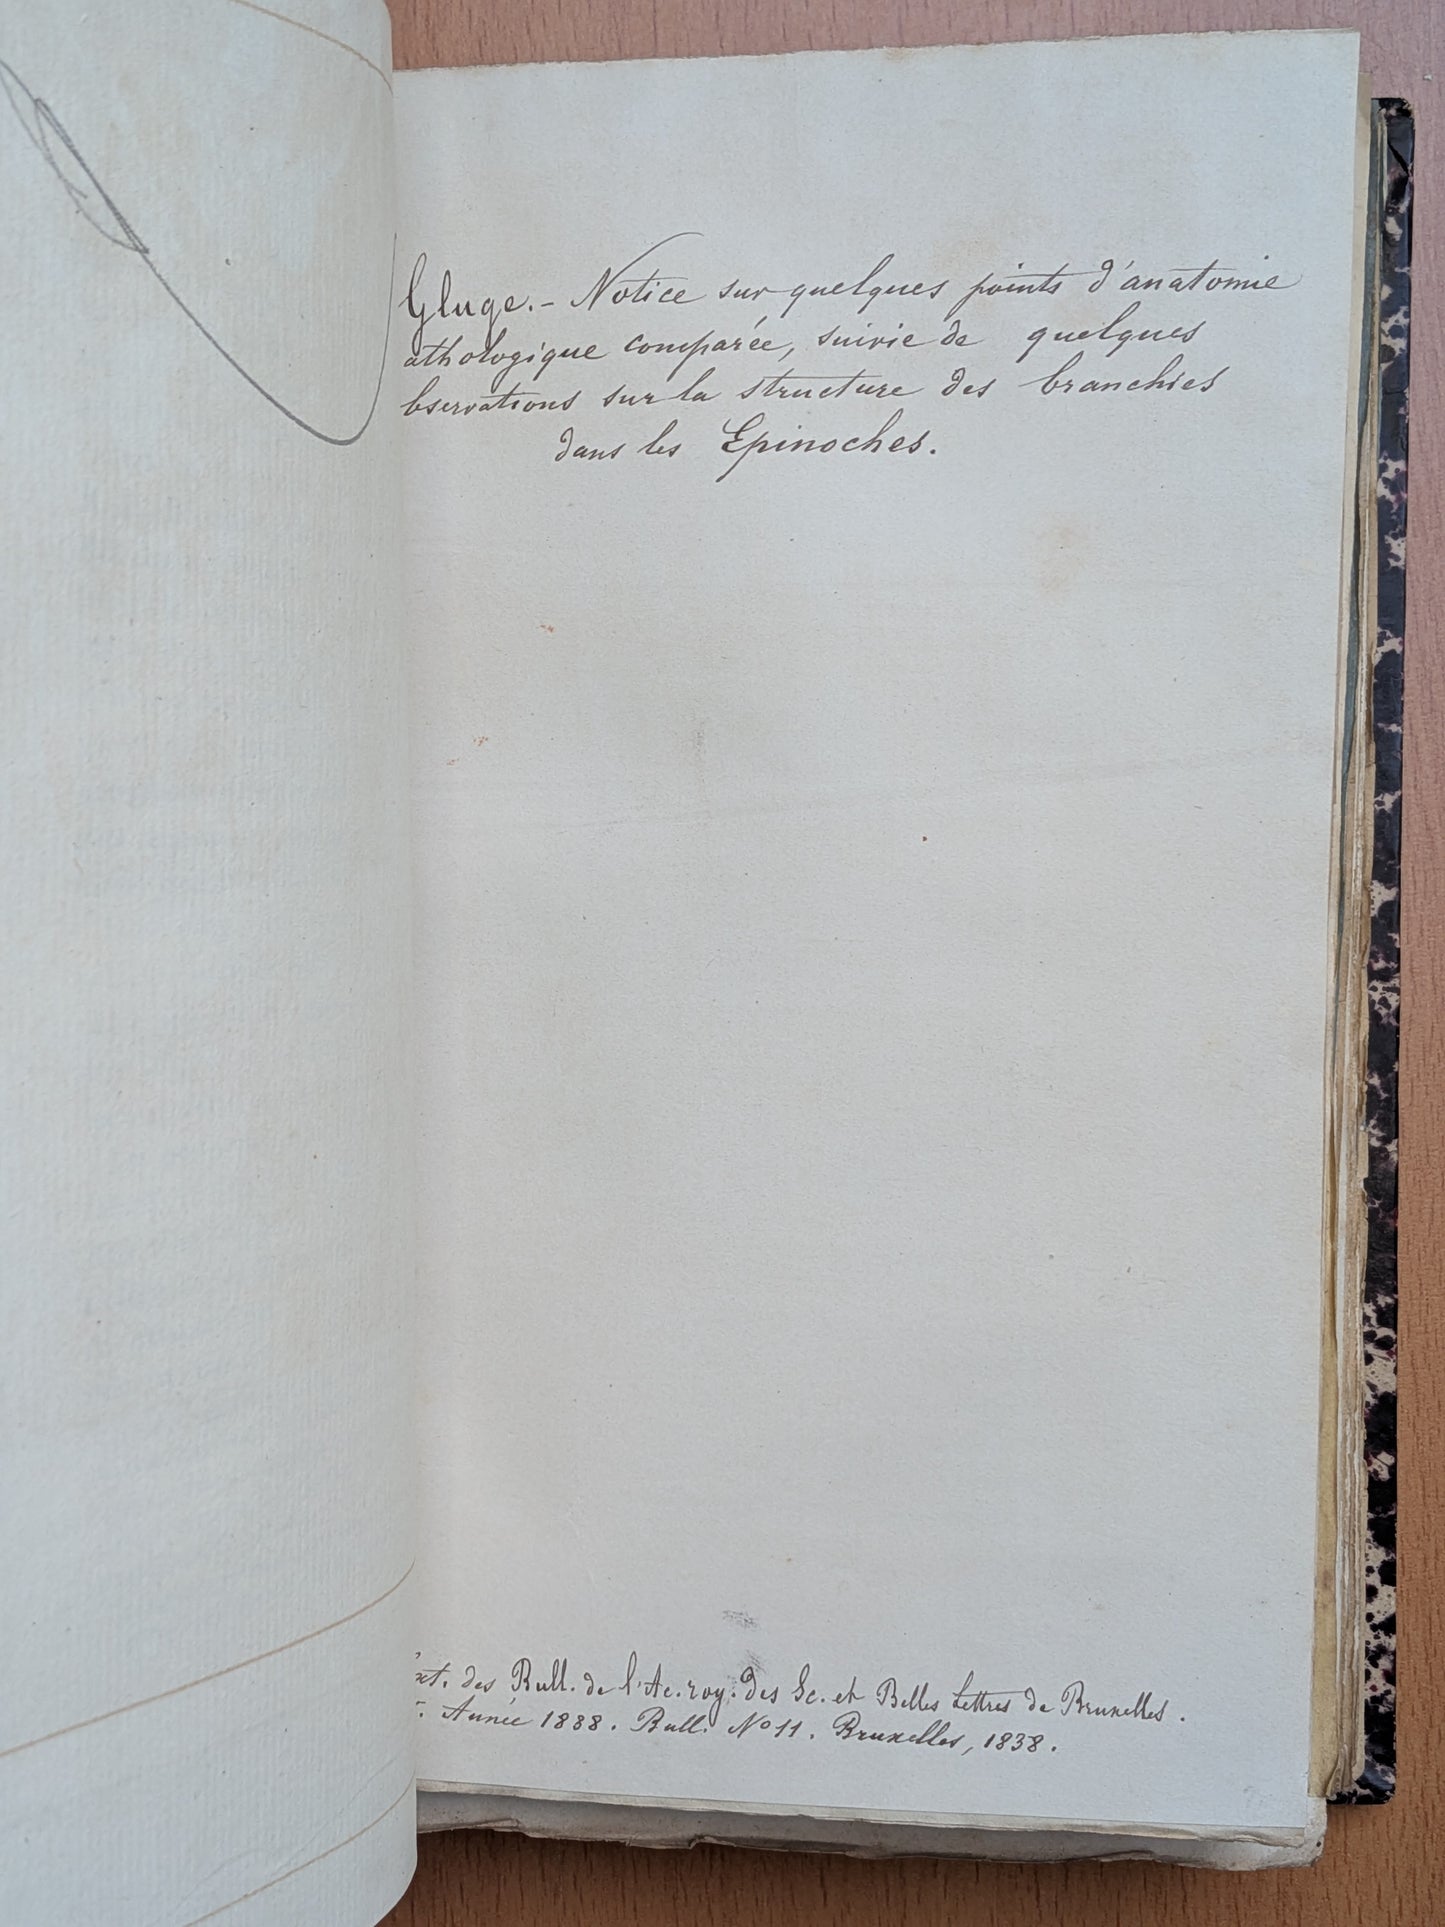 Gluge. - Notice sur quelques points d'anatomie
athologique comparée, suivie de quelques
bservations sur la structure des branchies
dans les Epinoches.
xt. des Bull. de l'Ac. roy. des Sc. et Belles Lettres de Bruxelles.
Année 1838. Bull. No 11. Bruxelles, 1838.